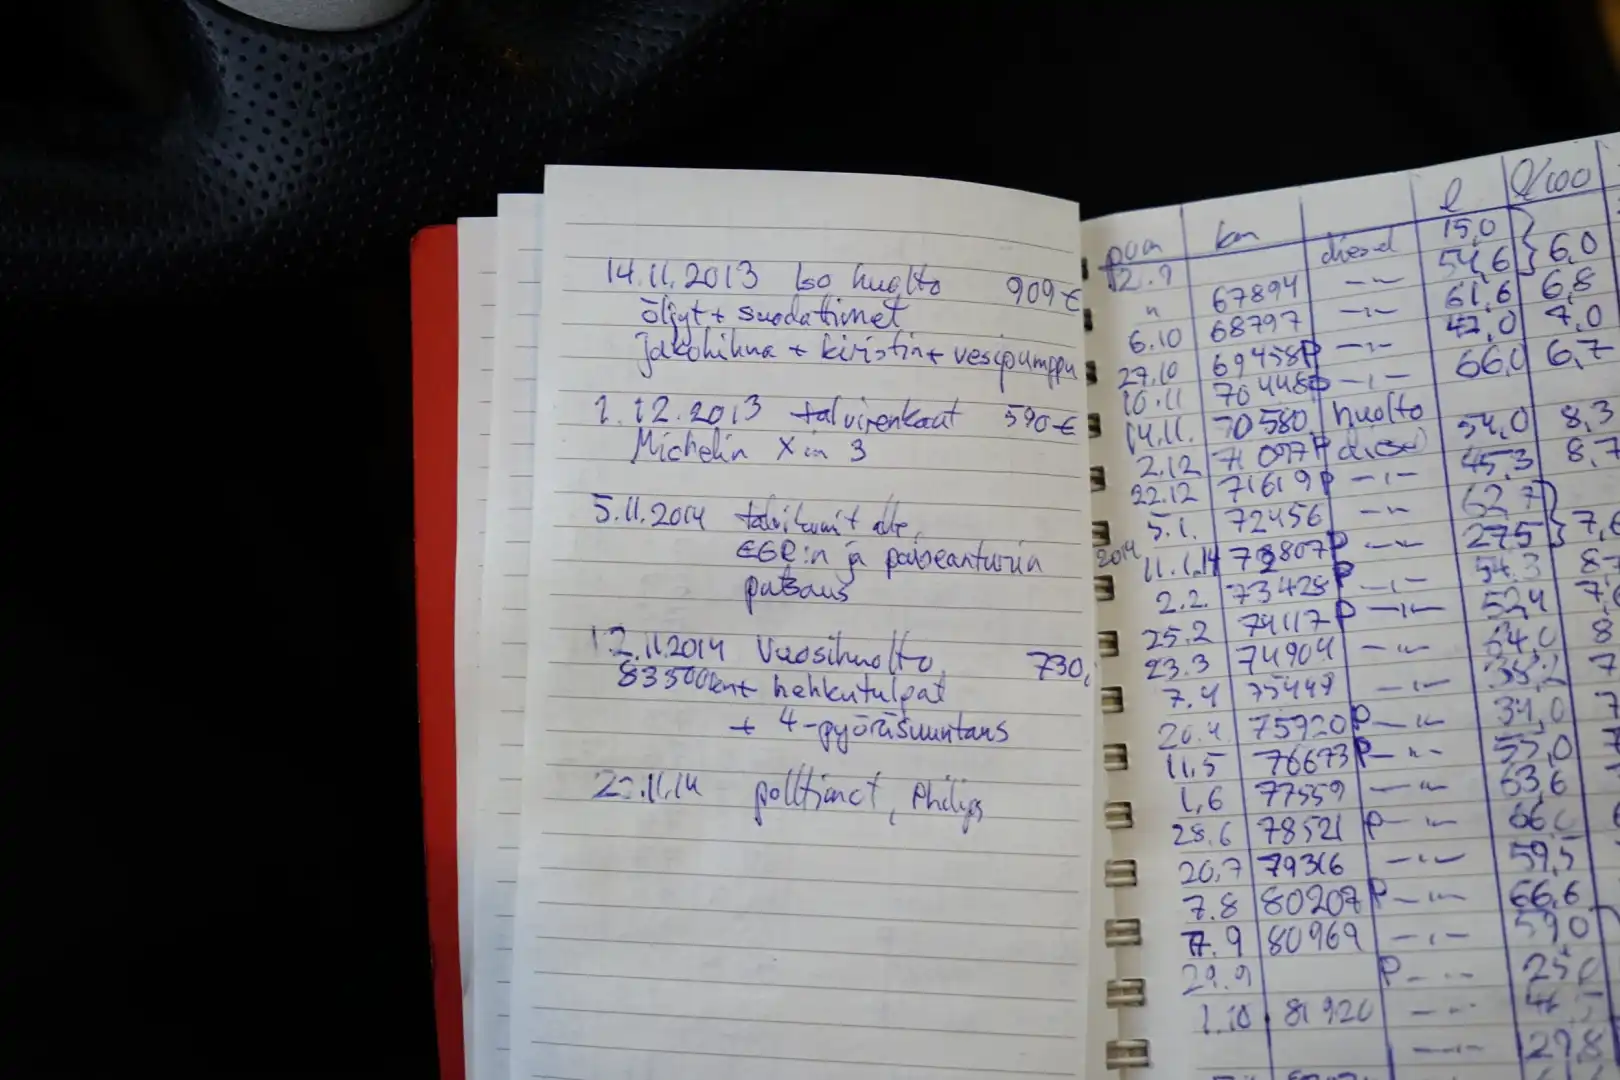 14.11.2013 Iso huolto 909€
öljyt + suodattimet
jakohihna + kiristin + vesipumppu
1.12.2013 talvirenkaat 590€
Michelin X in 3
5.11.2014 talvikumit alle,
EGR:n ja paineanturin
puhdistus
12.11.2014 Vuosihuolto 730,
83500km + hehkutulpat
+ 4-pyöräsuuntaus
.11.14 polttimot, Philips
pvm km l l/100
12.9 diesel 15,0
" 67894 -"- 54,6 6,0
6.10 68797 -"- 61,6 6,8
27.10 69458P -"- 47,0 7,0
10.11 70448P -"- 66,0 6,7
14.11. 70580 huolto
2.12 71097P diesel 54,0 8,3
22.12 71619P -"- 45,3 8,7
5.1. 72456 -"- 62,7
2014 11.1.14 72807P -"- 27,5 7,6
2.2. 73428P -"- 54,3
25.2 74117P -"- 52,4
23.3 74904 -"- 64,0 8
7.4 75449 -"- 7
20.4 75920P -"- 34,0 7
11.5 76673P -"- 55,0
1.6 77559 -"- 63,6
28.6 78521 P -"- 66,0
20.7 79316 -"- 59,5
7.8 80207P -"- 66,6
7.9 80969 -"- 59,0
29.9 P -"- 25,0
1.10 81920 -"-
-"- 29,8